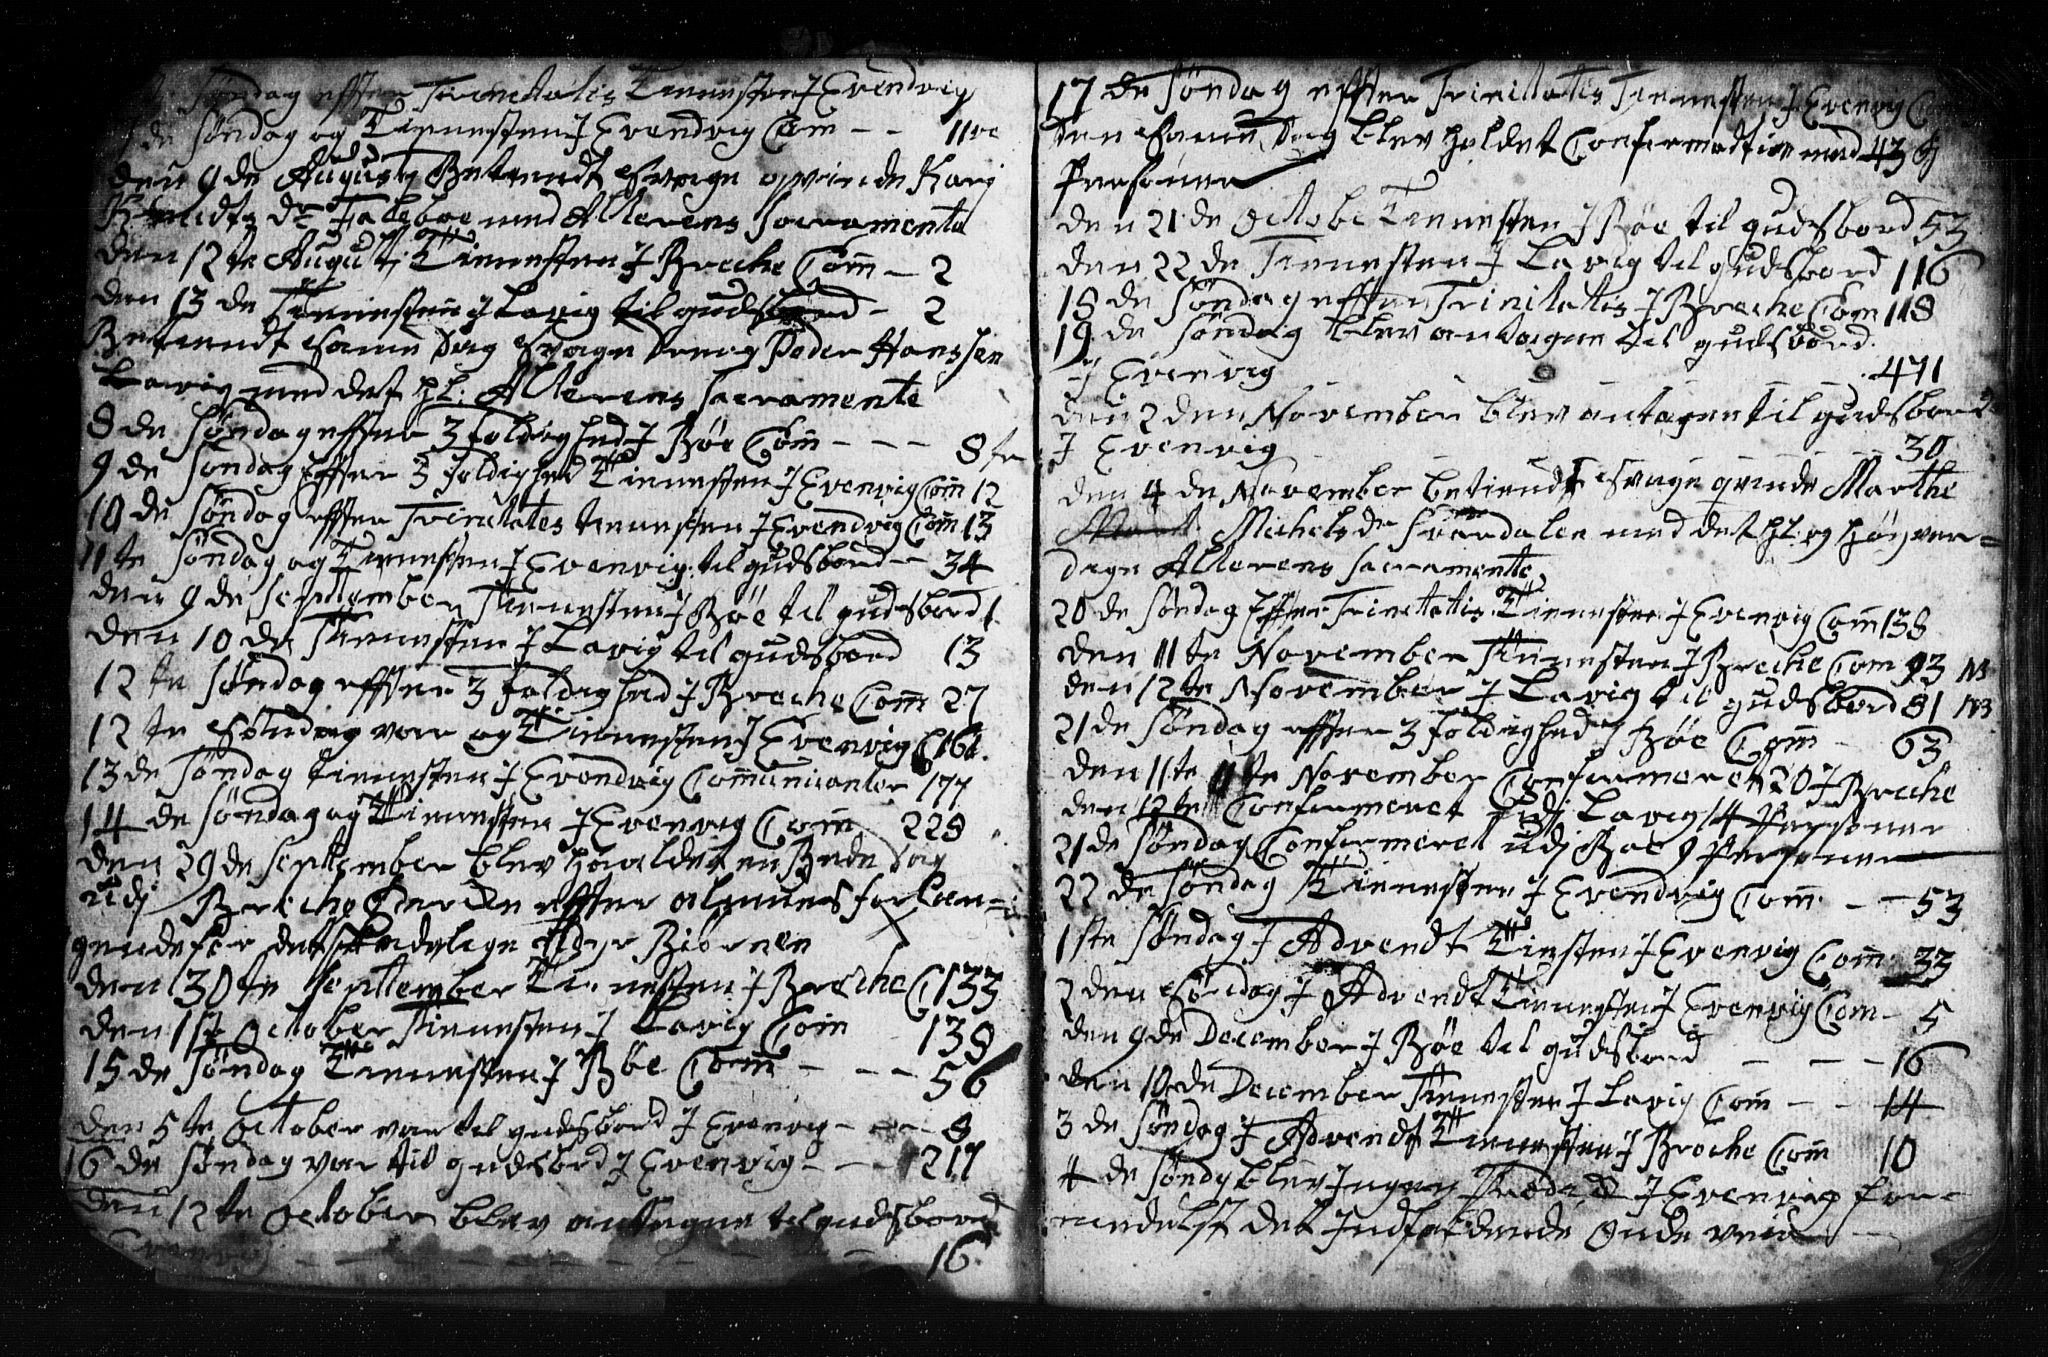 Søndag effter Trinitatis Tienesten J Evendvig
7 de Søndag og Tienesten J Evendvig Com - - 11ve
den 9 de Augustj Betiendt Svage qvinde Karj
dr. Taleboe med Alterens Sacramente
den 12 te Augustj Tienesten J Breche Com - 2
den 13 de Tienesten J Lavig til gudsbord - 2
Betiendt samme Dag Svage Dreng Peder Hanssen
Lavig med det hl. Alterens Sacramente
8 de Søndag effter 3foldighed J Bøe Com - - - 8te
9 de Søndag effter 3foldighed Tienesten J Evenvig Com 12
10 de Søndag effter Trinitates tienesten J Evendvig Com 13
11 te Søndag og Tienesten J Evenvig til gudsbord - 34
den 9 de September Tienesten J Bøe til gudsbord 1
den 10 de Tienesten J Lavig til gudsbord 13
12 te Søndag effter 3foldighed J Breche Com 27
12 te Søndag var og Tienesten J Evenvig C 161.
13 de Søndag tienesten J Evendvig Communicanter 177
14 de Søndag og Tienesten J Evenvig Com 228
den 29 de September blev haaldet en Bede Dag
udj Breche effter alunes for Lan=
gende for det skadelige dyr Biørnen
den 30 te September Tienesten J Breche C 133
den 1st October Tienesten J Lavig Com 138
15 de Søndag Tienesten J Bøe Com - - - 56
den 5 te October var til gudsbord J Evenvig - - - 8
16 de Søndag var til gudsbord J Evenvig - - - 217
den 12 te October blev antagne til gudsbord
J Evenvig - - - - - 16
17 de Søndag effter Trinitatis Tienesten J Evenvig Com
den samme Dag blev holdet Confermation med 43
Personer
den 21 de Octobe Tienesten J Bøe til gudsbord 53
den 22 de Tienesten J Lavig til gudsbord 116
18 de Søndag effter Trinitatis J Breche Com 118
19 de Søndag blev antagne til gudsbord
J Evenvig - - - 471
den 2 den November blev antagen til gudsbord
J Evenvig - - - 30
den 4 de November betiendt Svage qvinde Marthe
Michelsdr Sverdalen med det hl. og høyver=
dige Alterens Sacramente
20 de Søndag Effter Trinitatis Tienesten J Evenvig Com 138
den 11 te November Tienesten J Breche Com 93 NB
den 12 te November J Lavig til gudsbord 81 NB
21 de Søndag effter 3foldighed J Bøe Com - 63
den 11te November Confermeret 20 J Breche
den 12 te Confermeret udj Lavig 14 Personer
21 de Søndag Confermeret udj Bøe 9 Personer
22 de Søndag Tienesten J Evendvig Com - - 53
1ste Søndag J Advendt Tiensten J Evenvig Com 33
2 den Søndag J Advendt Tienesten J Evenvig Com - 5
den 9 de December J Bøe til gudsbord - - - 16
den 10 de December Tienesten J Lavig Com - - 14
3 de Søndag J Advendt Tienesten J Breche Com 10
4 de Søndg blev Jngen Præd: J Evenvig for=
medelst det Jndfaldende onde veir